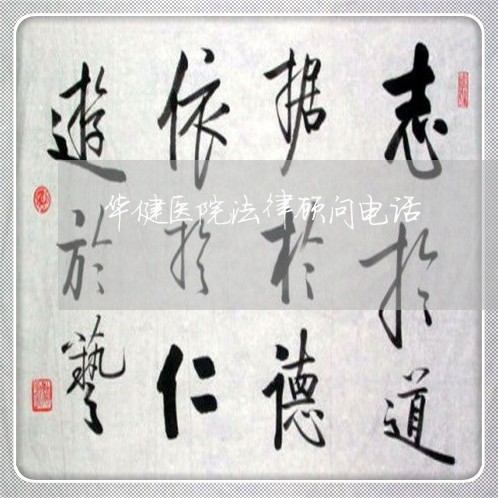 志於道
据於德
依於仁
遊於藝
华健医院法律顾问电话